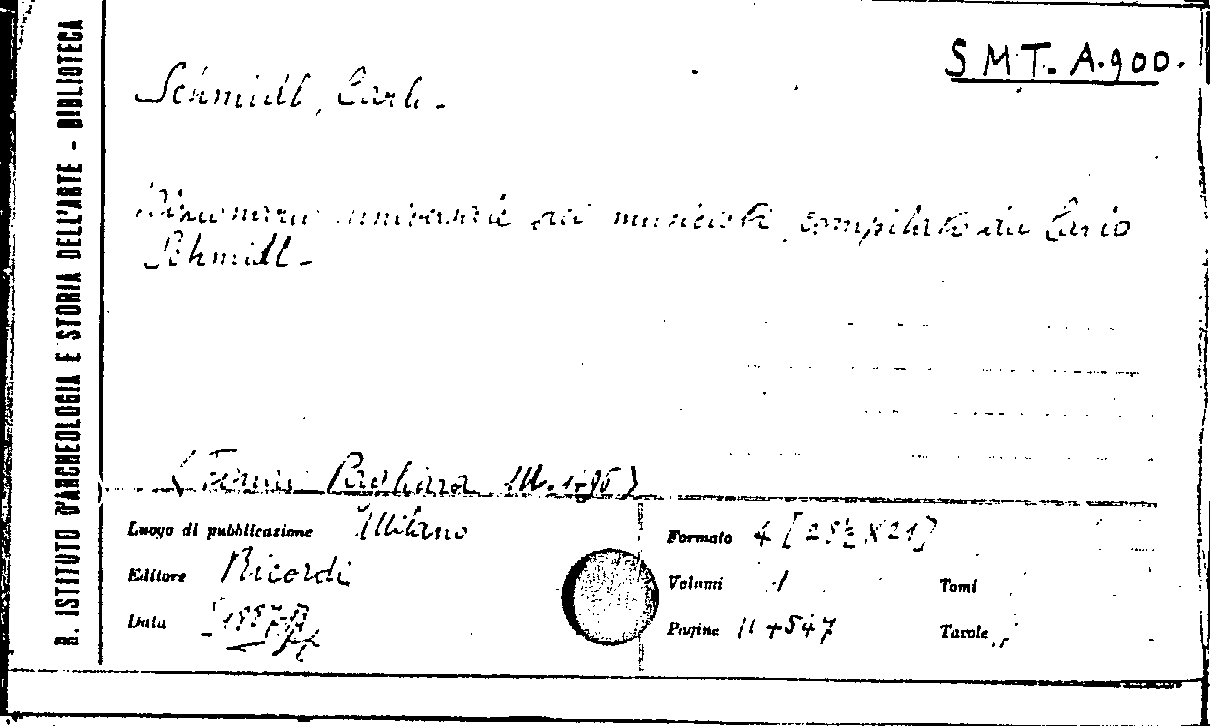 R. ISTITUTO D'ARCHEOLOGIA E STORIA DELL'ARTE - BIBLIOTECA
SMT. A.900.
Schmidl, Carlo.
Dizionario universale dei musicisti, compilato da Carlo
Schmidl.
Luogo di pubblicazione Milano
Editore Ricordi
Data
Formato 4 [28½ x 21]
Volumi 1
Tomi
Pagine II+547
Tavole